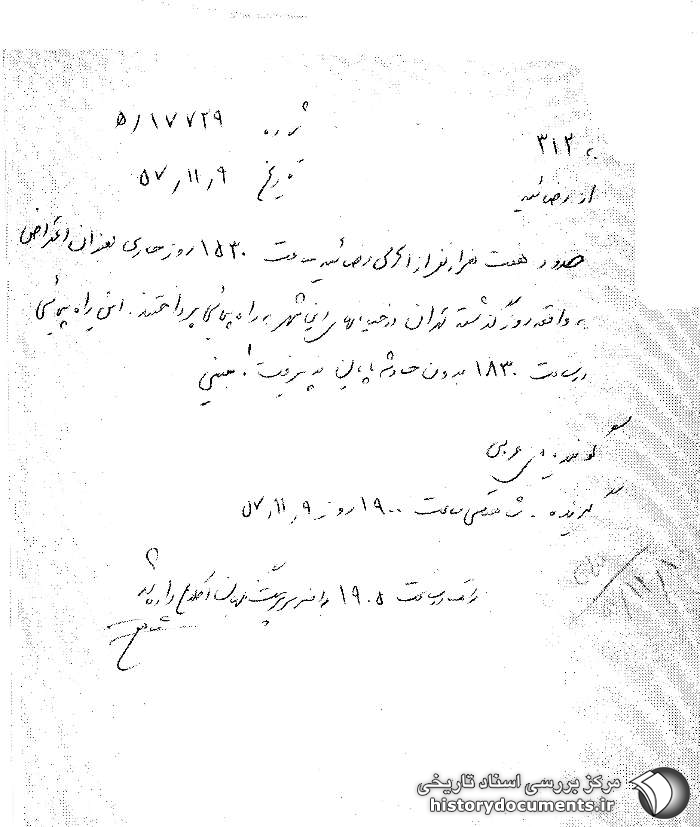 شماره ۵/۱۷۷۲۹
به ۳۱۲
تاریخ ۵۷/۱۱/۹
از رضائیه
حدود هفت هزار نفر از اهالی رضائیه ساعت ۱۵۳۰ روز جاری بعنوان اعتراض
به واقعه روز گذشته تهران در خیابانهای این شهر به راه پیمائی پرداختند. این راه پیمائی
در ساعت ۱۸۳۰ بدون حادثه پایان پذیرفت.
گوینده
گیرنده ساعت ۱۹۰۰ روز ۵۷/۱۱/۹
در ساعت ۱۹۰۵
مرکز بررسی اسناد تاریخی
historydocuments.ir